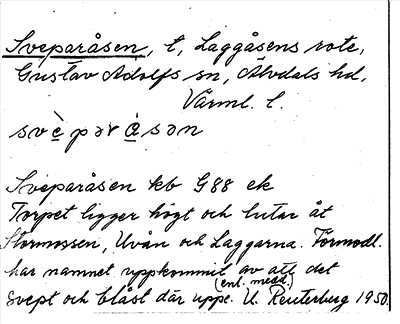 Sveparåsen, t, Laggåsens rote,
Gustav Adolfs sn, Älvdals hd,
Värml. l.
svèpərå̀sən
Sveparåsen kb G88 ek
Torpet ligger högt och lutar åt
Stormossen, Uvån och Laggarna. Förmodl.
har namnet uppkommit av att det
(enl. medd.)
svept och blåst där uppe. U. Reuterburg 1950.